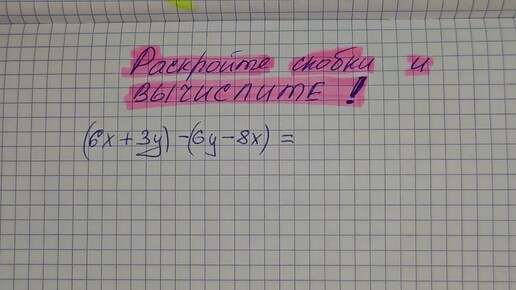 Раскройте скобки и
ВЫЧИСЛИТЕ !
(6x+3y)-(6y-8x)=